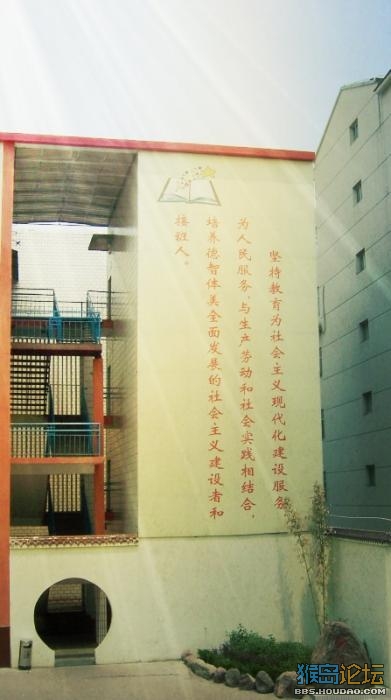 坚持教育为社会主义现代化建设服务
为人民服务，与生产劳动和社会实践相结合，
培养德智体美全面发展的社会主义建设者和
接班人。
猴岛论坛
BBS.HOUDAO.COM